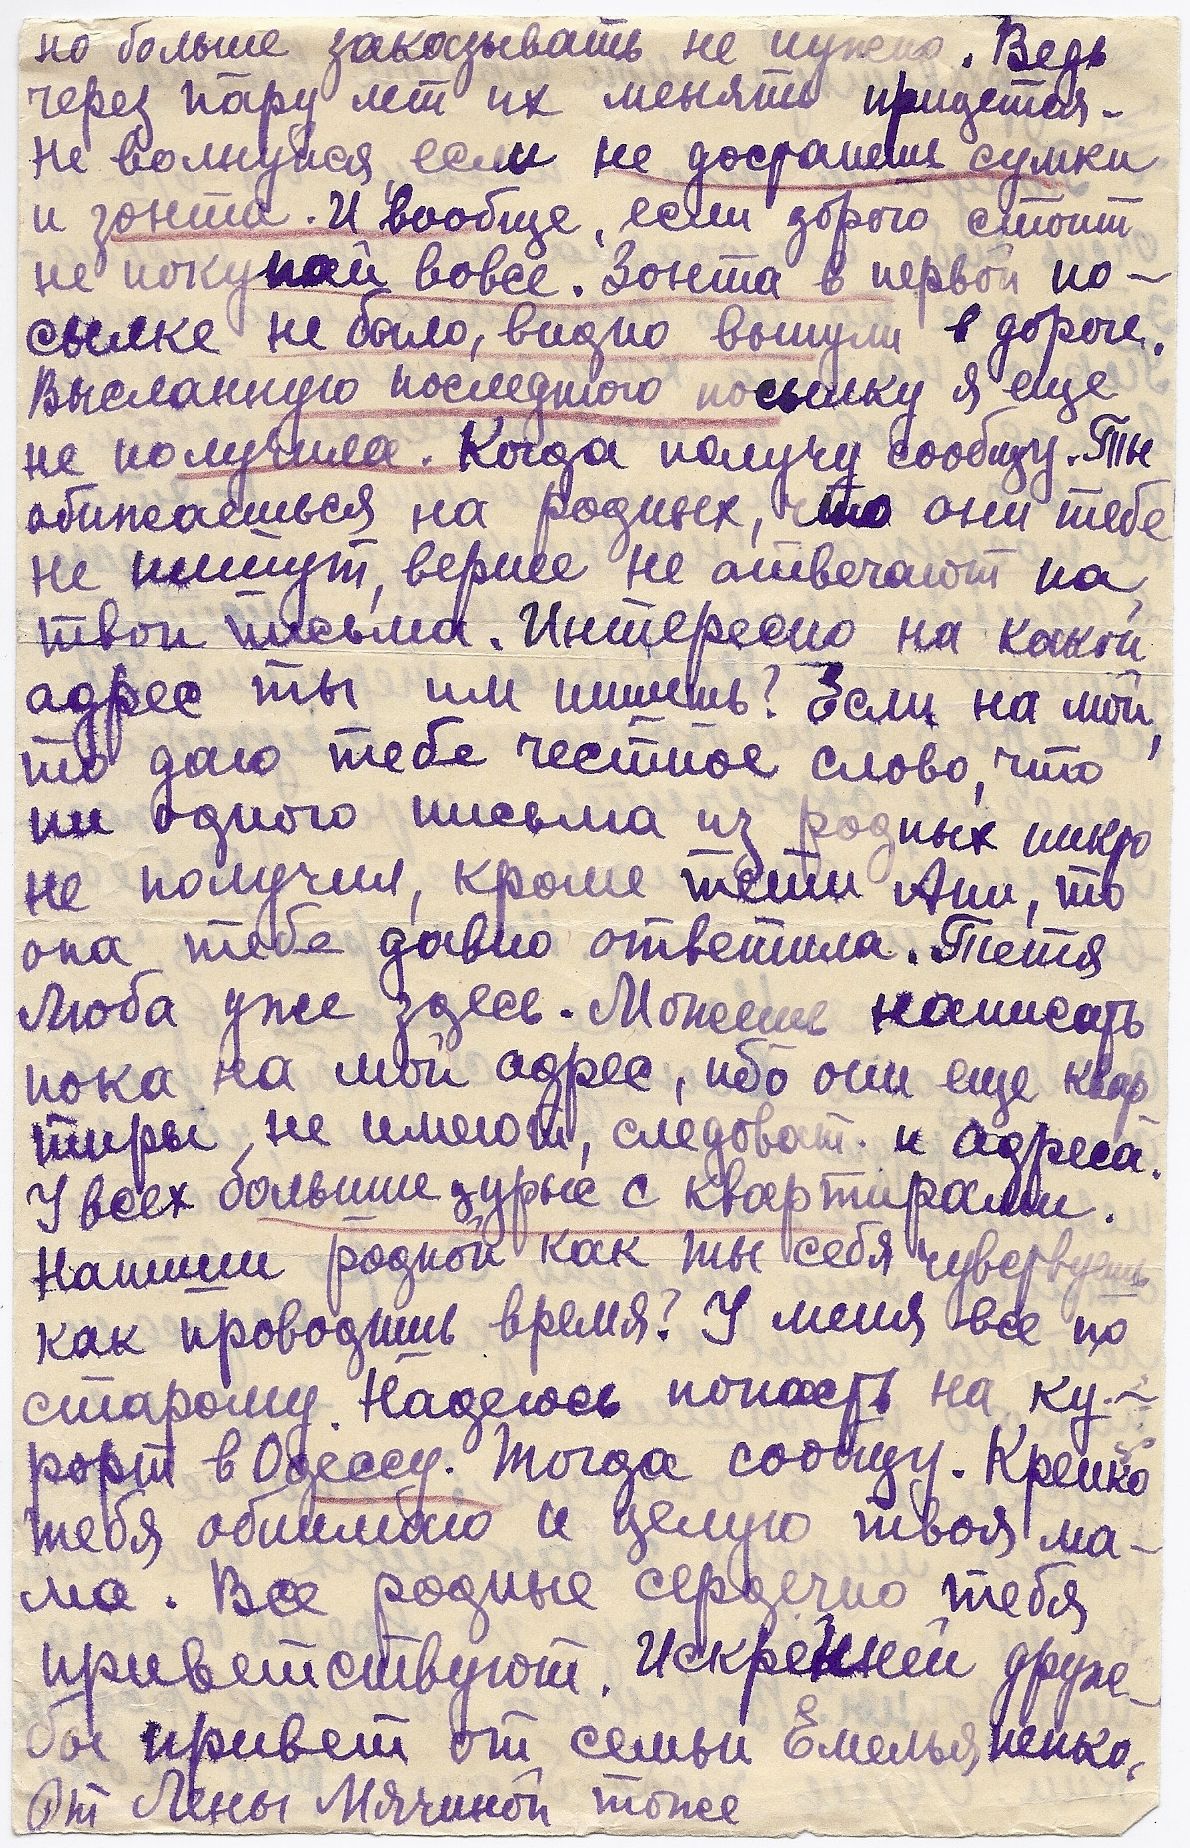 но больше заказывать не нужно. Ведь
через пару лет их менять придется.
Не волнуйся, если не достанешь сумки
и зонта. И вообще, если дорого стоит
не покупай вовсе. Зонта в первой по-
сылке не было, видно вынули в дороге.
Высланную последнюю посылку я еще
не получила. Когда получу сообщу. Ты
обижаешься на родных, что они тебе
не пишут, вернее не отвечают на
твои письма. Интересно на какой
адрес ты им пишешь? Если на мой,
то даю тебе честное слово, что
ни одного письма из родных никто
не получил, кроме тети Ани, то
она тебе давно ответила. Тетя
Люба уже здесь. Можешь написать
пока на мой адрес, ибо они еще квар
тиры не имеют, следоват. и адреса.
У всех большие зурые с квартирами.
Напиши родной как ты себя чувствуешь
как проводишь время? У меня все по
старому. Надеюсь попасть на ку-
рорт в Одессу. Тогда сообщу. Крепко
тебя обнимаю и целую твоя ма-
ма. Все родные сердечно тебя
приветствуют. Искренней друж-
бы привет от семьи Емельяненко.
От Лены Мячиной тоже